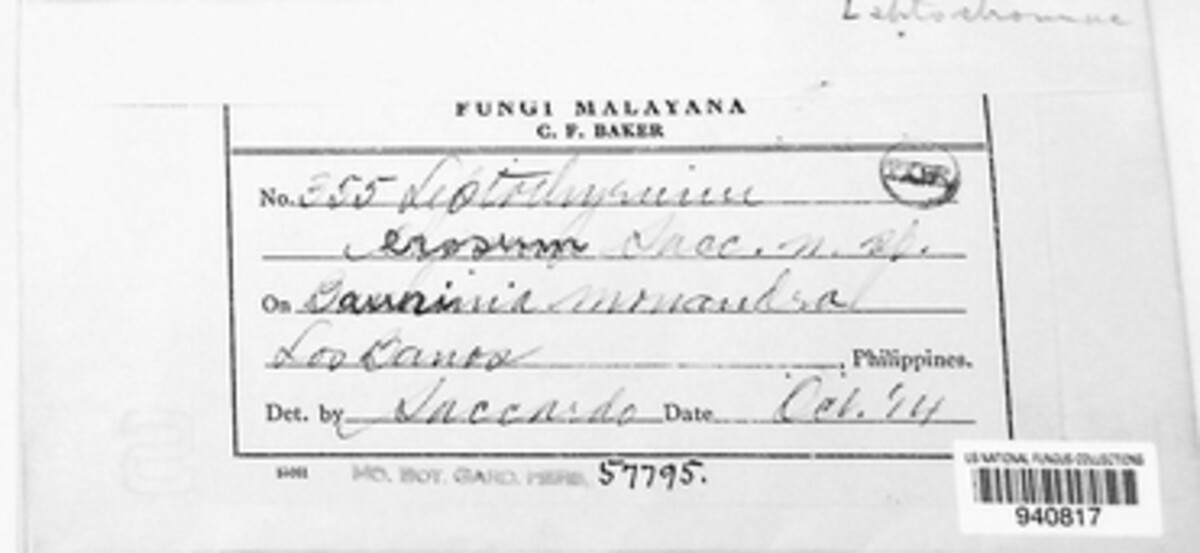 Leptostromac
FUNGI MALAYANA
C. F. BAKER
No. 355 Leptothyrium
erosum Sacc. n. sp.
On Bauhinia monandra
Los Banos, Philippines.
Det. by Saccardo Date Oct. '14
MO. BOT. GARD. HERB. 57795.
US NATIONAL FUNGUS COLLECTIONS
940817